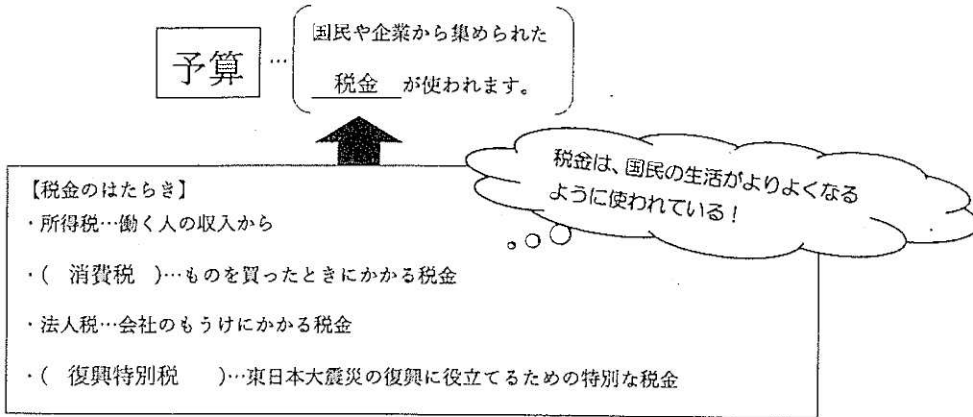 予算…国民や企業から集められた
税金が使われます。
税金は、国民の生活がよりよくなる
ように使われている！
【税金のはたらき】
・所得税…働く人の収入から
・(　消費税　)…ものを買ったときにかかる税金
・法人税…会社のもうけにかかる税金
・(　復興特別税　　)…東日本大震災の復興に役立てるための特別な税金